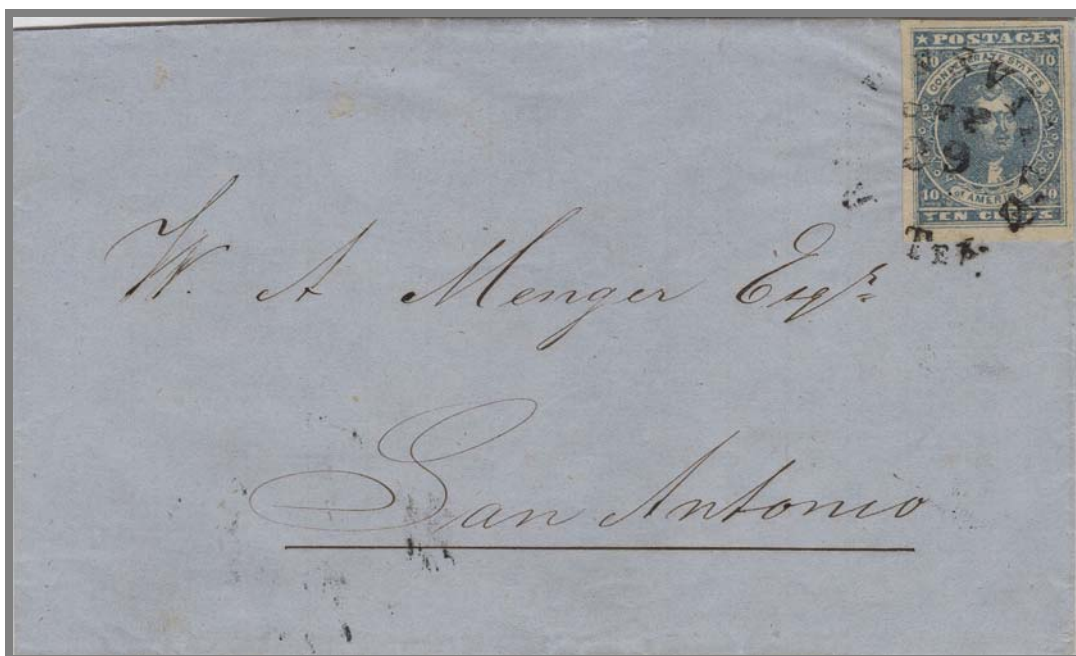 ★POSTAGE★
10 10
CONFEDERATE STATES
OF AMERICA
10 10
TEN CENTS
TEX.
W. A Menger Esqr.
San Antonio